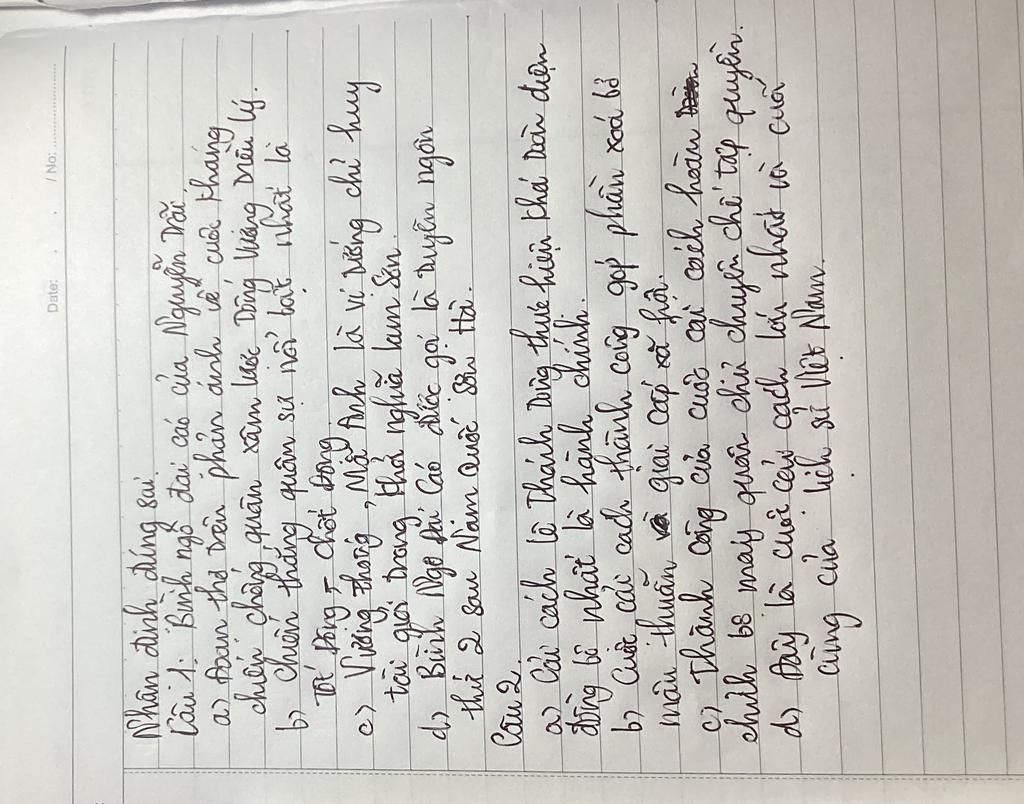 Date: / No:
Nhận định đúng sai
Câu 1: Bình ngô đại cáo của Nguyễn Trãi.
a) Đoạn thơ trên phản ánh về cuộc kháng
chiến chống quân xâm lược Tống Vương triều Lý.
b) Chiến thắng quân sự nổi bật nhất là
Tốt Động - Chốt Động.
c) Vương Thông, Mã Anh là vị tướng chỉ huy
tài giỏi trong khởi nghĩa Lam Sơn.
d) Bình Ngô Đại Cáo được gọi là tuyên ngôn
thứ 2 sau Nam Quốc Sơn Hà.
Câu 2.
a) Cải cách Lê Thánh Tông thực hiện khá toàn diện
đồng bộ nhất là hành chính.
b) Cuộc cải cách thành công góp phần xoá bỏ
mâu thuẫn giai cấp xã hội.
c) Thành công của cuộc cải cách hoàn
chỉnh bộ máy quân chủ chuyên chế tập quyền.
d) Đây là cuộc cải cách lớn nhất và cuối
cùng của lịch sử Việt Nam.